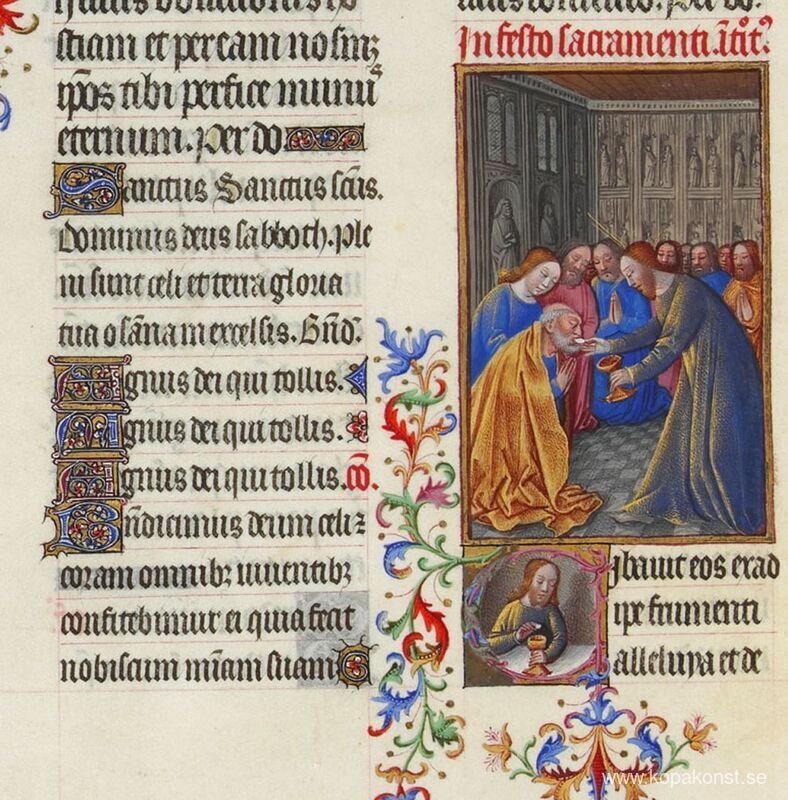 stiam et precam nostrꝝ
ip̄os tibi perfice munus
eternum. Per do
Sanctus Sanctus sc̄us.
Dominus deus sabboth. Ple
ni sunt celi et terra gloria
tua osāna in excelsis. Bn̄d.
Agnus dei qui tollis.
Agnus dei qui tollis.
Agnus dei qui tollis. cō.
Bn̄dicimus deum celi ⁊
coram omnibꝫ uiuentibꝫ
confitebimur ei quia fecit
nobiscum mīam suam
In festo sacramenti. ītroit⁹
Cibauit eos ex ad
ipe frumenti
alleluya et de
www.kopakonst.se